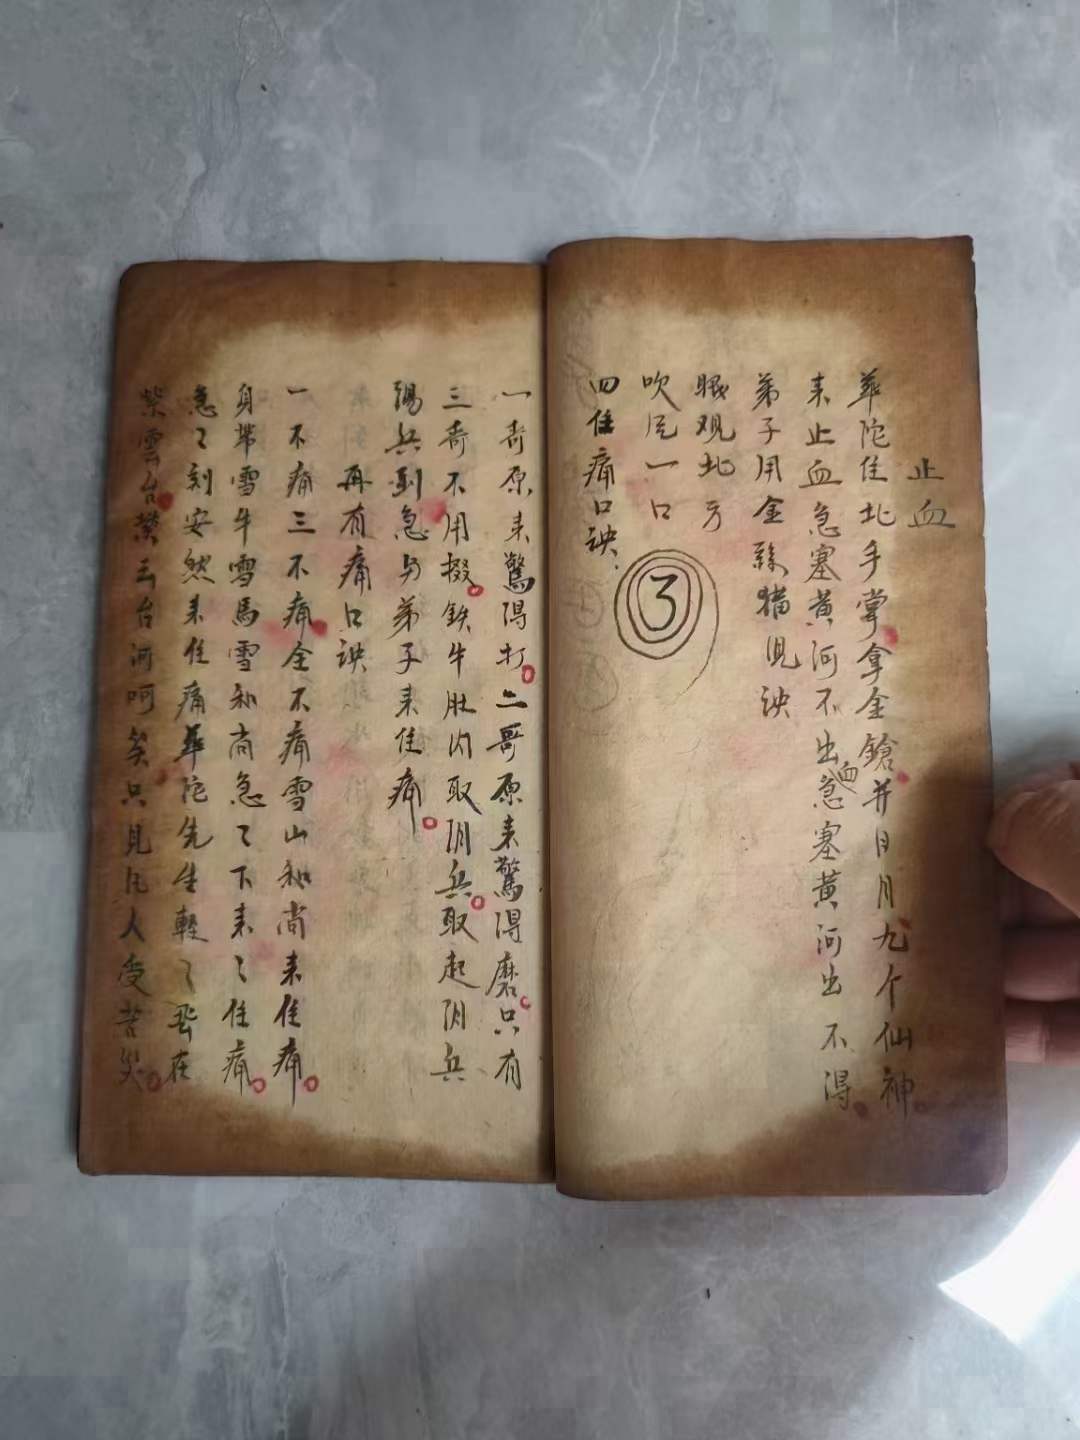 止血
華陀住北手掌拿金鎗并日月九个仙神
来止血急塞黄河不出血急塞黄河出不得
弟子用金絲猫児訣
眼观北方
吹气一口
四住痛口訣
了
一哥原来驚得打二哥原来驚得磨只有
三哥不用掇鉄牛肚内取阴兵取起阴兵
陽兵到急与弟子来住痛
再有痛口訣
一不痛三不痛全不痛雪山和尚来住痛
身帯雪牛雪馬雪和尚急々下来々住痛
急々刻安然来住痛華陀先生輕々坐在
紫雲台紫云台河呵矣只見凡人受苦災